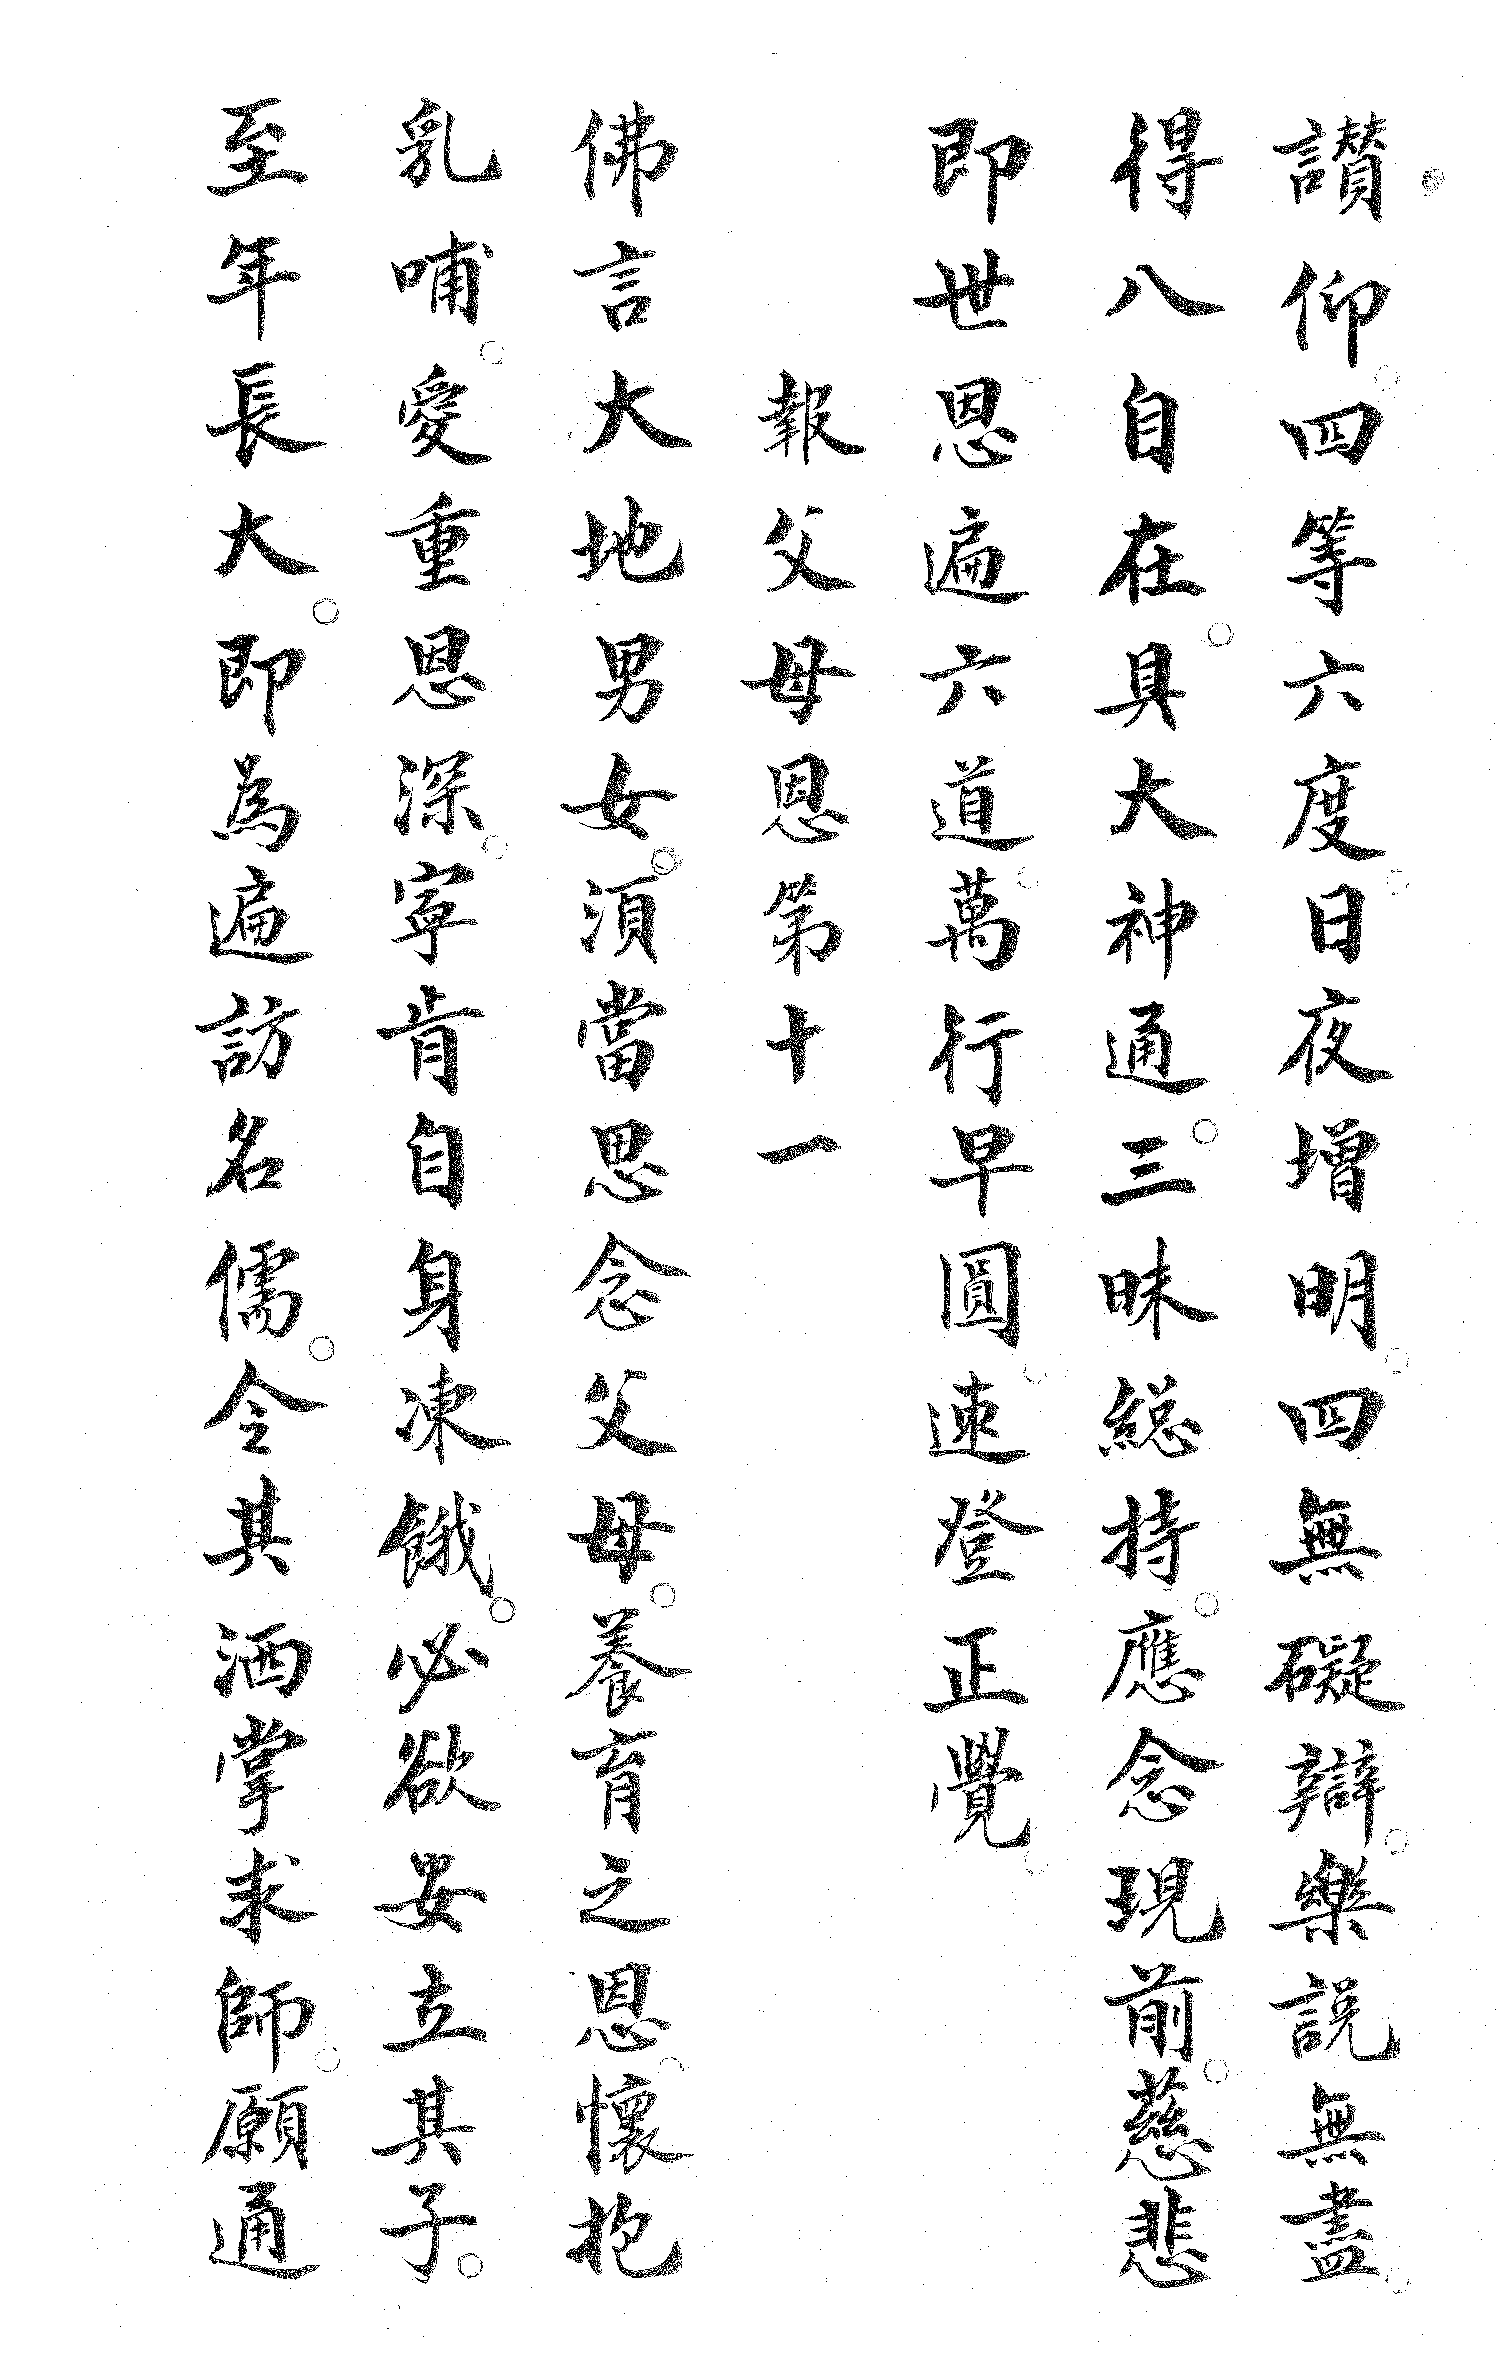 讃仰四等六度日夜增明四無礙辯樂說無盡
得八自在具大神通三昧総持應念現前慈悲
即世恩遍六道萬行早圓速登正覺
報父母恩第十一
佛言大地男女須當思念父母養育之恩懷抱
乳哺愛重恩深寧肯自身凍餓必欲安立其子
至年長大即為遍訪名儒令其洒掌求師願通